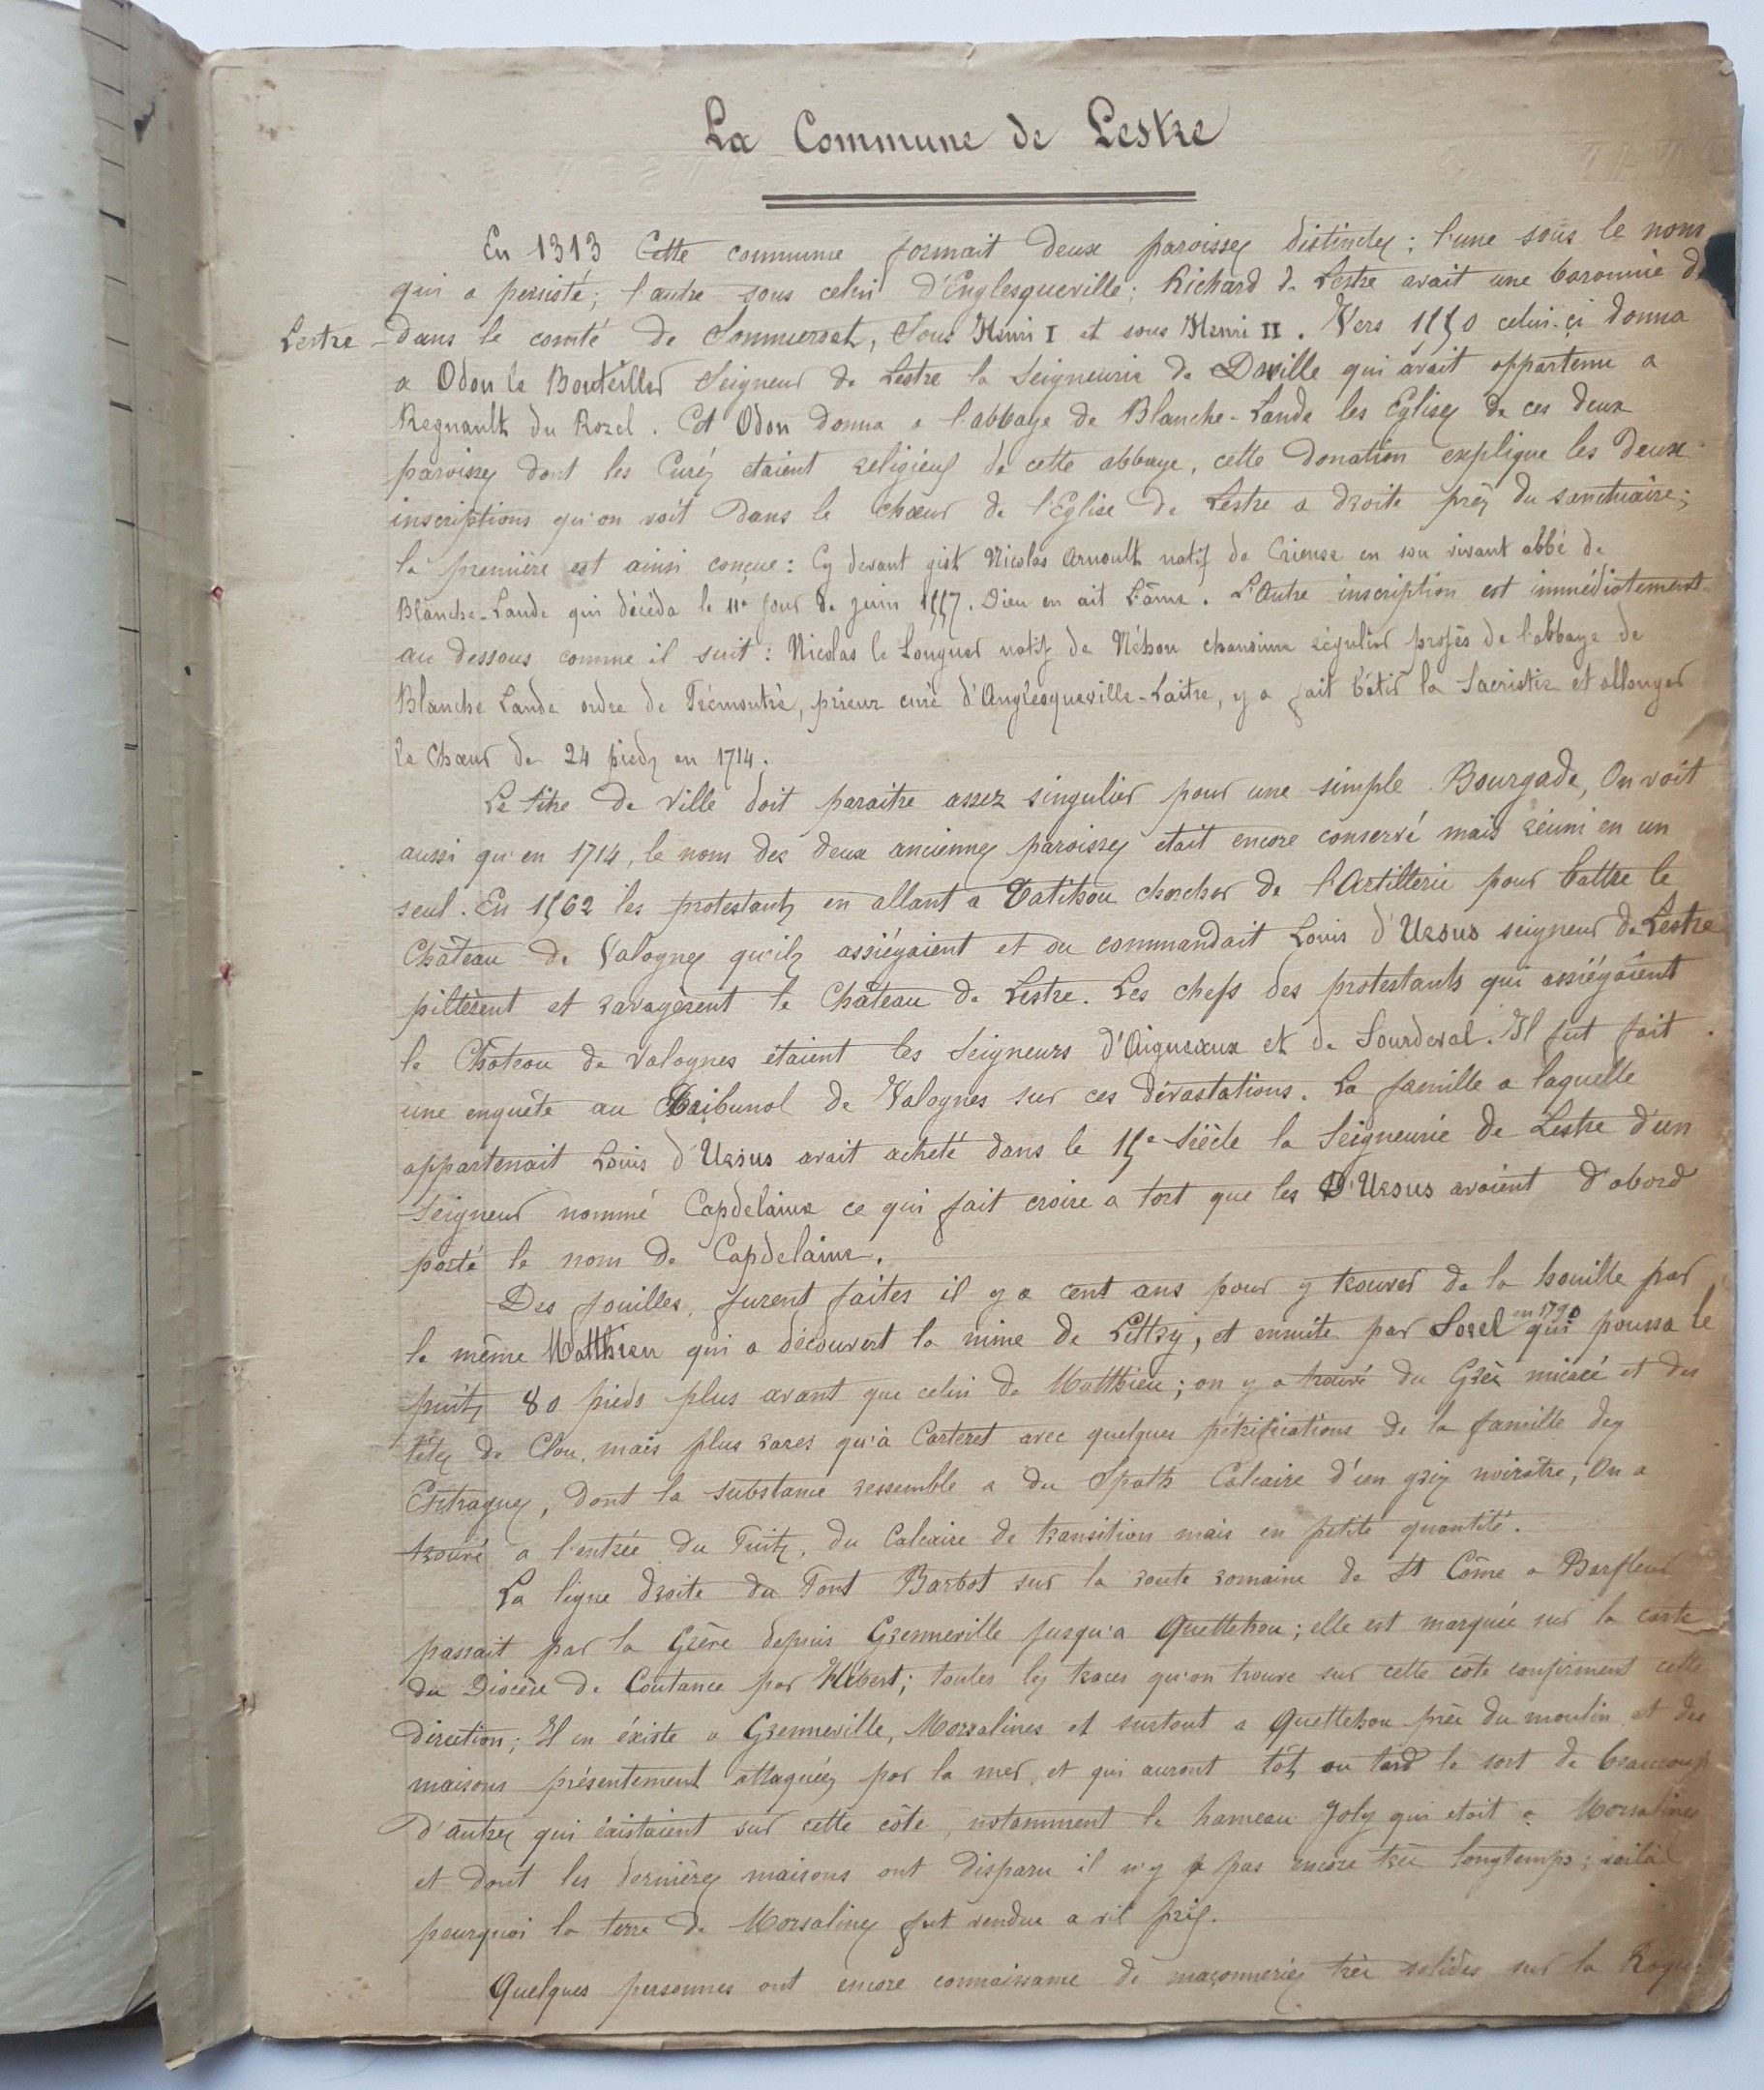 La Commune de Lestre
En 1313 Cette commune formait deux paroisses distinctes ; l'une sous le nom
qui a persisté ; l'autre sous celui d'Englesqueville ; Richard de Lestre avait une baronnie de
Lestre dans le comté de Sommerset, Sous Henri I et sous Henri II. Vers 1150 celui-çi donna
a Odon le Bouteiller Seigneur de Lestre la Seigneurie de qui avait appartenu a
Regnault du Rozel. Cet Odon donna a l'abbaye de Blanche-Lande les Eglises de ces deux
paroisses dont les Curés etaient religieux de cette abbaye, cette donation explique les deux
inscriptions qu'on voit dans le chœur de l'Eglise de Lestre a droite près du sanctuaire ;
la première est ainsi conçue : Cy devant gist Nicolas Arnoult natif de en son vivant abbé de
Blanche-Lande qui décéda le 11e jour de juin 1557. Dieu en ait l'âme. L'Autre inscription est immédiatement
au dessous comme il suit : Nicolas le Longuer natif de Néhou chanoine régulier profès de l'abbaye de
Blanche Lande ordre de Prémontré, prieur curé d'Anglesqueville-Laitre, y a fait bâtir la Sacristie et allonger
le Chœur de 24 pieds en 1714.
Le titre de ville doit paraitre assez singulier pour une simple Bourgade, On voit
aussi qu'en 1714, le nom des deux anciennes paroisses etait encore conservé mais réuni en un
seul. En 1562 les protestants en allant a Tatihou chercher de l'Artillerie pour battre le
Château de Valognes qu'ils assiégaient et ou commandait Louis d'Ursus seigneur de Lestre
pillèrent et ravagèrent le Château de Lestre. Les chefs des protestants qui assiégaient
le Château de Valognes étaient les Seigneurs d'Aigneaux et de Sourdeval. Il fut fait
une enquête au Tribunal de Valognes sur ces dévastations. La famille a laquelle
appartenait Louis d'Ursus avait acheté dans le 15e Siècle la Seigneurie de Lestre d'un
Seigneur nommé Capdelaine ce qui fait croire a tort que les D'Ursus avaient d'abord
porté le nom de Capdelaine.
Des fouilles, furent faites il y a cent ans pour y trouver de la houille par
le même Matthieu qui a découvert la mine de Littry, et ensuite par Sorel en 1790 qui poussa le
puits 80 pieds plus avant que celui de Matthieu ; on y a trouvé du Grès micacé et des
têtes de Clou, mais plus rares qu'à Carteret avec quelques pétrifications de la famille des
dont la substance ressemble a du Spath Calcaire d'un gris noirâtre, On a
trouvé a l'entrée du Puits, du Calcaire de transition mais en petite quantité.
La ligne droite du Pont Barbot sur la route romaine de St Côme a Barfleur
passait par la Grève depuis Grenneville jusqu'a Quettehou ; elle est marquée sur la carte
du Diocèse de Coutance par Hébert ; toutes les traces qu'on trouve sur cette cote confirment cette
direction ; Il en éxiste a Grenneville, Morsalines et surtout a Quettehou près du moulin et des
maisons présentement attaquées par la mer, et qui auront tôt ou tard le sort de beaucoup
d'autres qui éxistaient sur cette côte, notamment le hameau Joly qui etait a Morsalines
et dont les dernières maisons ont disparu il n'y a pas encore très longtemps ; voilà
pourquoi la terre de Morsalines fut vendue a vil prix.
Quelques personnes ont encore connaissance de maçonneries très solides sur la